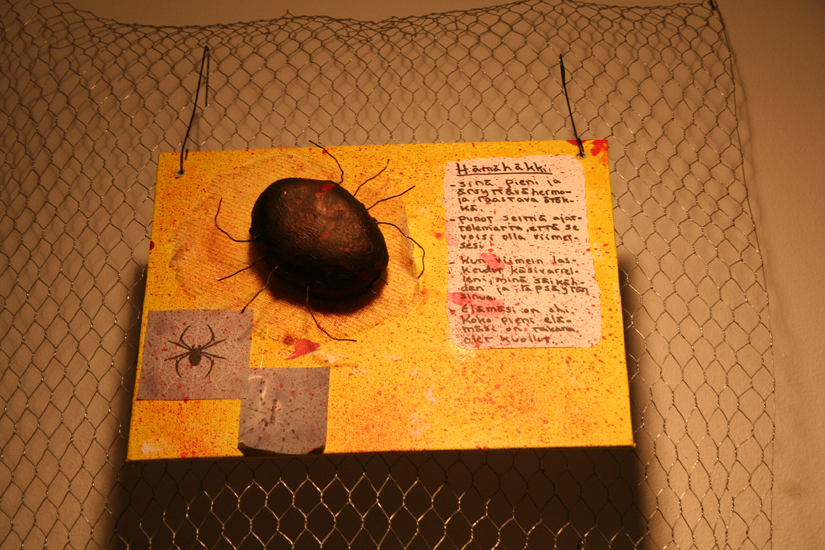 Hämähäkki.
- sinä pieni ja
ärsyttävä hermo-
ja, raastava ötök-
kä.
- punot seittiä ajat-
telematta, että se
voisi olla viimei-
sesi
- Kun viimein las-
keudut käsivarrel-
leni, minä säikäh-
dän ja läpsäytän
sinua.
Elämäsi on ohi.
Koko pieni elä-
mäsi on
olet kuollut.